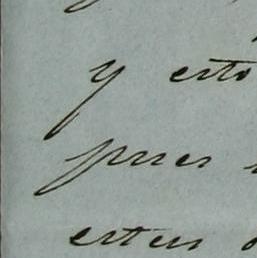 y esto
pues
estas